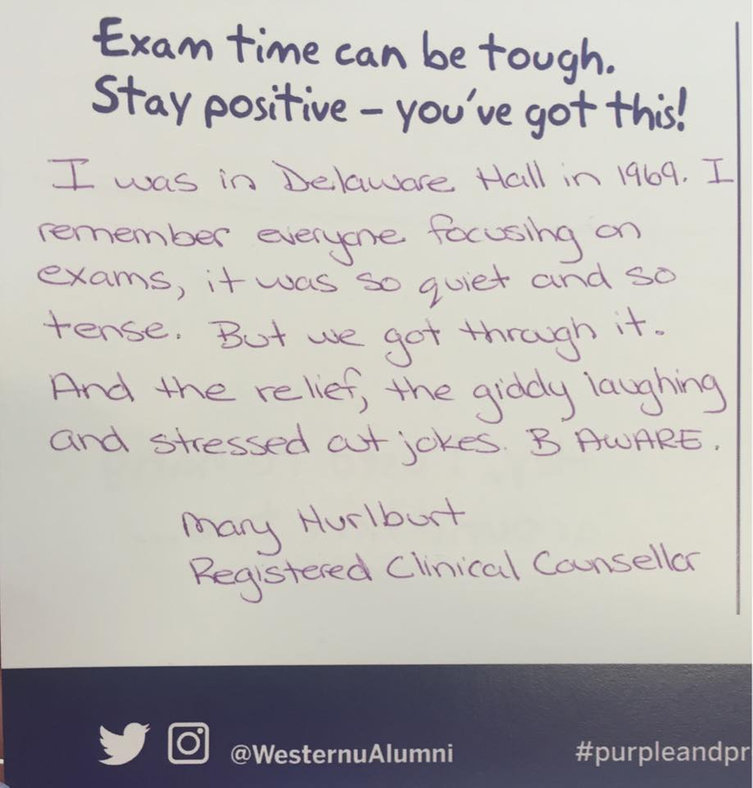 Exam time can be tough.
Stay positive – you've got this!
I was in Delaware Hall in 1969. I
remember everyone focusing on
exams, it was so quiet and so
tense. But we got through it.
And the relief, the giddy laughing
and stressed out jokes. B AWARE.
Mary Hurlburt
Registered Clinical Counsellor
@WesternuAlumni
#purpleandpr